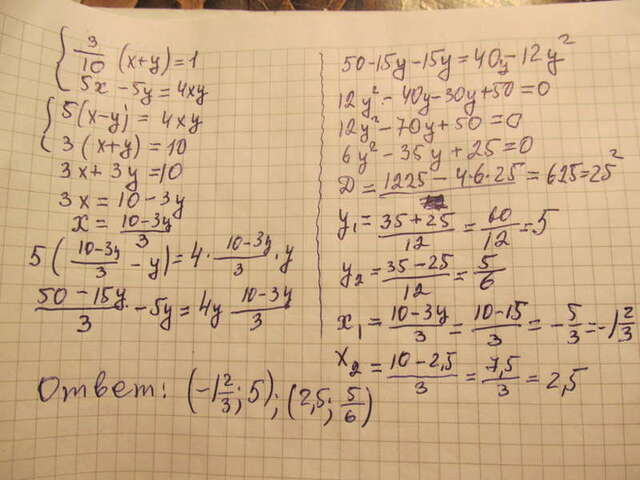 { 3/10 (x+y)=1
5x-5y=4xy
{ 5(x-y)=4xy
3(x+y)=10
3x+3y=10
3x=10-3y
x=(10-3y)/3
5((10-3y)/3 - y)=4·(10-3y)/3·y
(50-15y)/3 - 5y=4y (10-3y)/3
50-15y-15y=40y-12y²
12y²-40y-30y+50=0
12y²-70y+50=0
6y²-35y+25=0
D=1225-4·6·25=625=25²
y₁=(35+25)/12=60/12=5
y₂=(35-25)/12=5/6
x₁=(10-3y)/3=(10-15)/3=-5/3=-1 2/3
x₂=(10-2,5)/3=7,5/3=2,5
Ответ: (-1 2/3; 5); (2,5; 5/6)